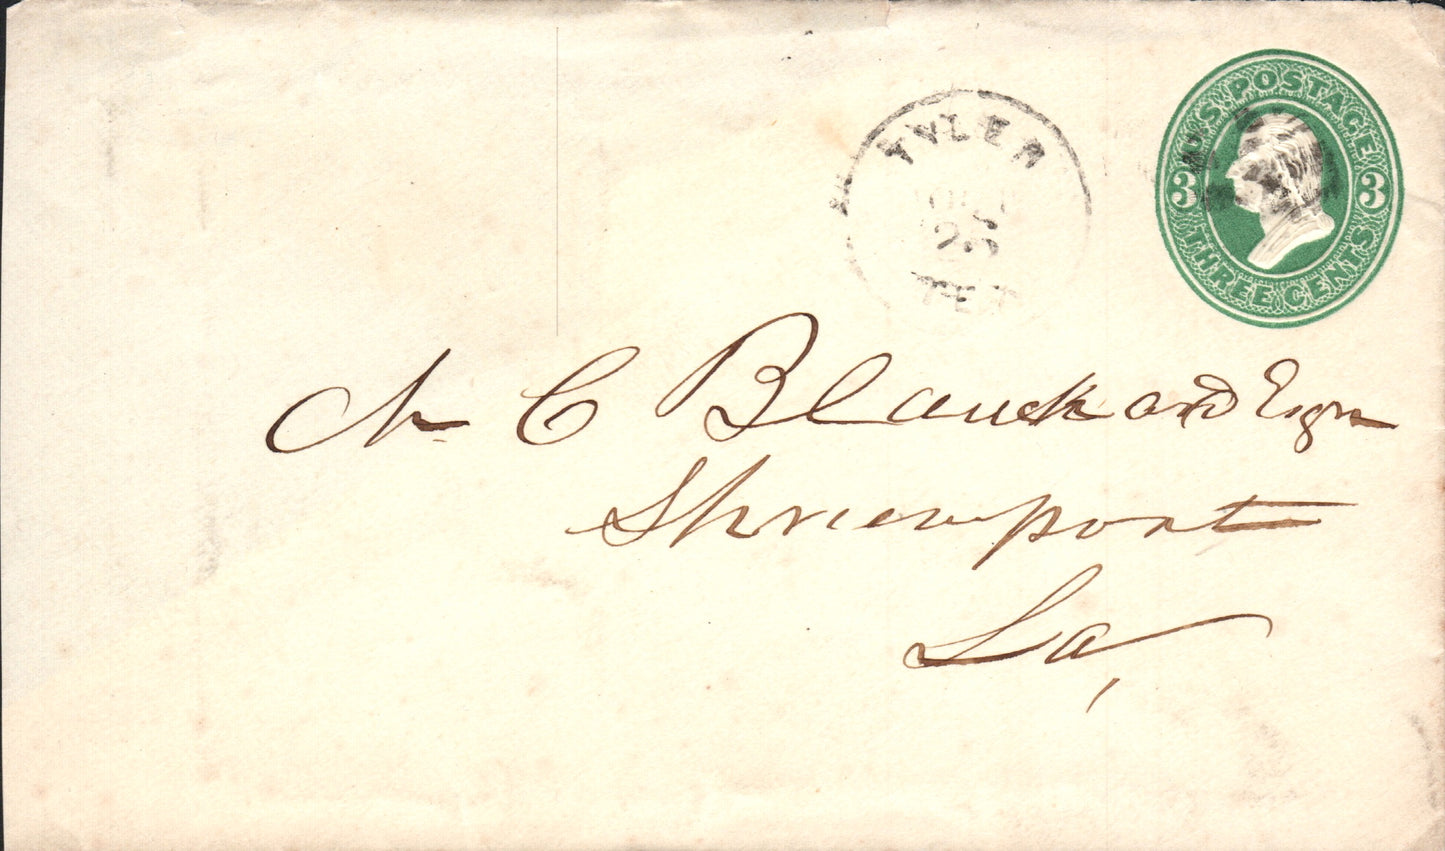 U.S. POSTAGE
3 3
THREE CENTS
TYLER
25
TEX
N C Blanchard Esqr
Shreveport
La,